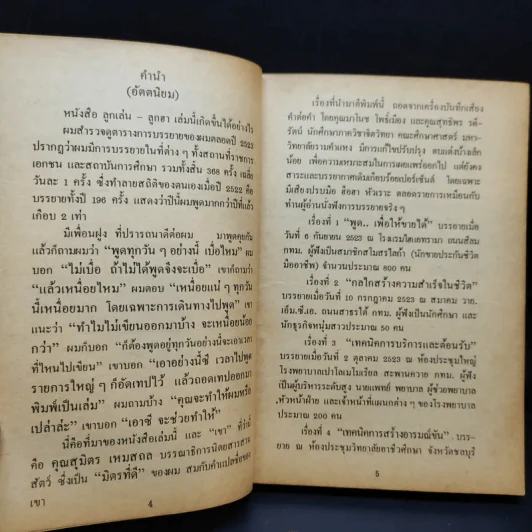 คำนำ
(อัตตนิยม)
หนังสือ ลูกเล่น - ลูกฮา เล่มนี้เกิดขึ้นได้อย่างไร
ผมสำรวจดูตารางการบรรยายของผมตลอดปี 2523
ปรากฏว่าผมมีการบรรยายในที่ต่าง ๆ ทั้งสถานที่ราชการ
เอกชน และสถาบันการศึกษา รวมทั้งสิ้น 368 ครั้ง เฉลี่ย
วันละ 1 ครั้ง ซึ่งทำลายสถิติของตนเองเมื่อปี 2522 คือ
บรรยายทั้งปี 196 ครั้ง แสดงว่าปีนี้ผมพูดมากกว่าปีที่แล้ว
เกือบ 2 เท่า
มีเพื่อนฝูง ที่ปรารถนาดีต่อผม มาพูดคุยกัน
แล้วก็ถามผมว่า “พูดทุกวัน ๆ อย่างนี้ เบื่อไหม” ผม
บอก “ไม่เบื่อ ถ้าไม่ได้พูดซิจะเบื่อ” เขาก็ถามว่า
“แล้วเหนื่อยไหม” ผมตอบ “เหนื่อยแน่ ๆ ทุกวัน
นี้เหนื่อยมาก โดยเฉพาะการเดินทางไปพูด” เขา
แนะว่า “ทำไมไม่เขียนออกมาบ้าง จะเหนื่อยน้อย
กว่า” ผมก็บอก “ก็ต้องพูดอยู่ทุกวันอย่างนี้ จะเอาเวลา
ที่ไหนไปเขียน” เขาบอก “เอาอย่างนี้ซี เวลาไปพูด
รายการใหญ่ ๆ ก็อัดเทปไว้ แล้วถอดเทปออกมา
พิมพ์เป็นเล่ม” ผมถามบ้าง “คุณจะทำให้ผมหรือ
เปล่าล่ะ” เขาบอก “เอาซี จะช่วยทำให้”
นี่คือที่มาของหนังสือเล่มนี้ และ “เขา” ที่ว่านี้
คือ คุณสุมิตร เหมสถล บรรณาธิการนิตยสารสาร
สัตว์ ซึ่งเป็น “มิตรที่ดี” ของผม สมกับคำแปลชื่อของ
เขา
4
เรื่องที่นำมาตีพิมพ์นี้ ถอดจากเครื่องบันทึกเสียง
คำต่อคำ โดยคุณมาโนช โพธิ์เมือง และคุณสุทธิพร รดี-
รัตน์ นักศึกษาภาควิชาจิตวิทยา คณะศึกษาศาสตร์ มหา-
วิทยาลัยรามคำแหง มีการแก้ไขปรับปรุง ตบแต่งบ้างเล็ก
น้อย เพื่อความเหมาะสมในการเผยแพร่ออกไป แต่ยังคง
สาระและบรรยากาศเดิมเกือบร้อยเปอร์เซ็นต์ โดยเฉพาะ
มีเสียงปรบมือ ฮือฮา หัวเราะ ตลอดรายการเหมือนกับ
ท่านผู้อ่านนั่งฟังการบรรยายจริง ๆ
เรื่องที่ 1 “พูด.. เพื่อให้ขายได้” บรรยายเมื่อ
วันที่ 6 กันยายน 2523 ณ โรงแรมไฮแอทรามา ถนนสีลม
กทม. ผู้ฟังเป็นสมาชิกสโมสรไลก้า (นักขายประกันชีวิต
มืออาชีพ) จำนวนประมาณ 800 คน
เรื่องที่ 2 “กลไกสร้างความสำเร็จในชีวิต”
บรรยายเมื่อวันที่ 10 กรกฎาคม 2523 ณ สมาคม วาย.
เอ็ม.ซี.เอ. ถนนสาธรใต้ กทม. ผู้ฟังเป็นนักศึกษา และ
นักธุรกิจหนุ่มสาวประมาณ 50 คน
เรื่องที่ 3 “เทคนิคการบริการและต้อนรับ”
บรรยายเมื่อวันที่ 2 ตุลาคม 2523 ณ ห้องประชุมใหญ่
โรงพยาบาลเปาโลเมโมเรียล สะพานควาย กทม. ผู้ฟัง
เป็นผู้บริหารระดับสูง นายแพทย์ พยาบาล ผู้ช่วยพยาบาล,
หัวหน้าฝ่าย และเจ้าหน้าที่แผนกต่าง ๆ ของโรงพยาบาล
ประมาณ 200 คน
เรื่องที่ 4 “เทคนิคการสร้างอารมณ์ขัน” บรร-
ยาย ณ ห้องประชุมวิทยาลัยอาชีวศึกษา จังหวัดชลบุรี
5